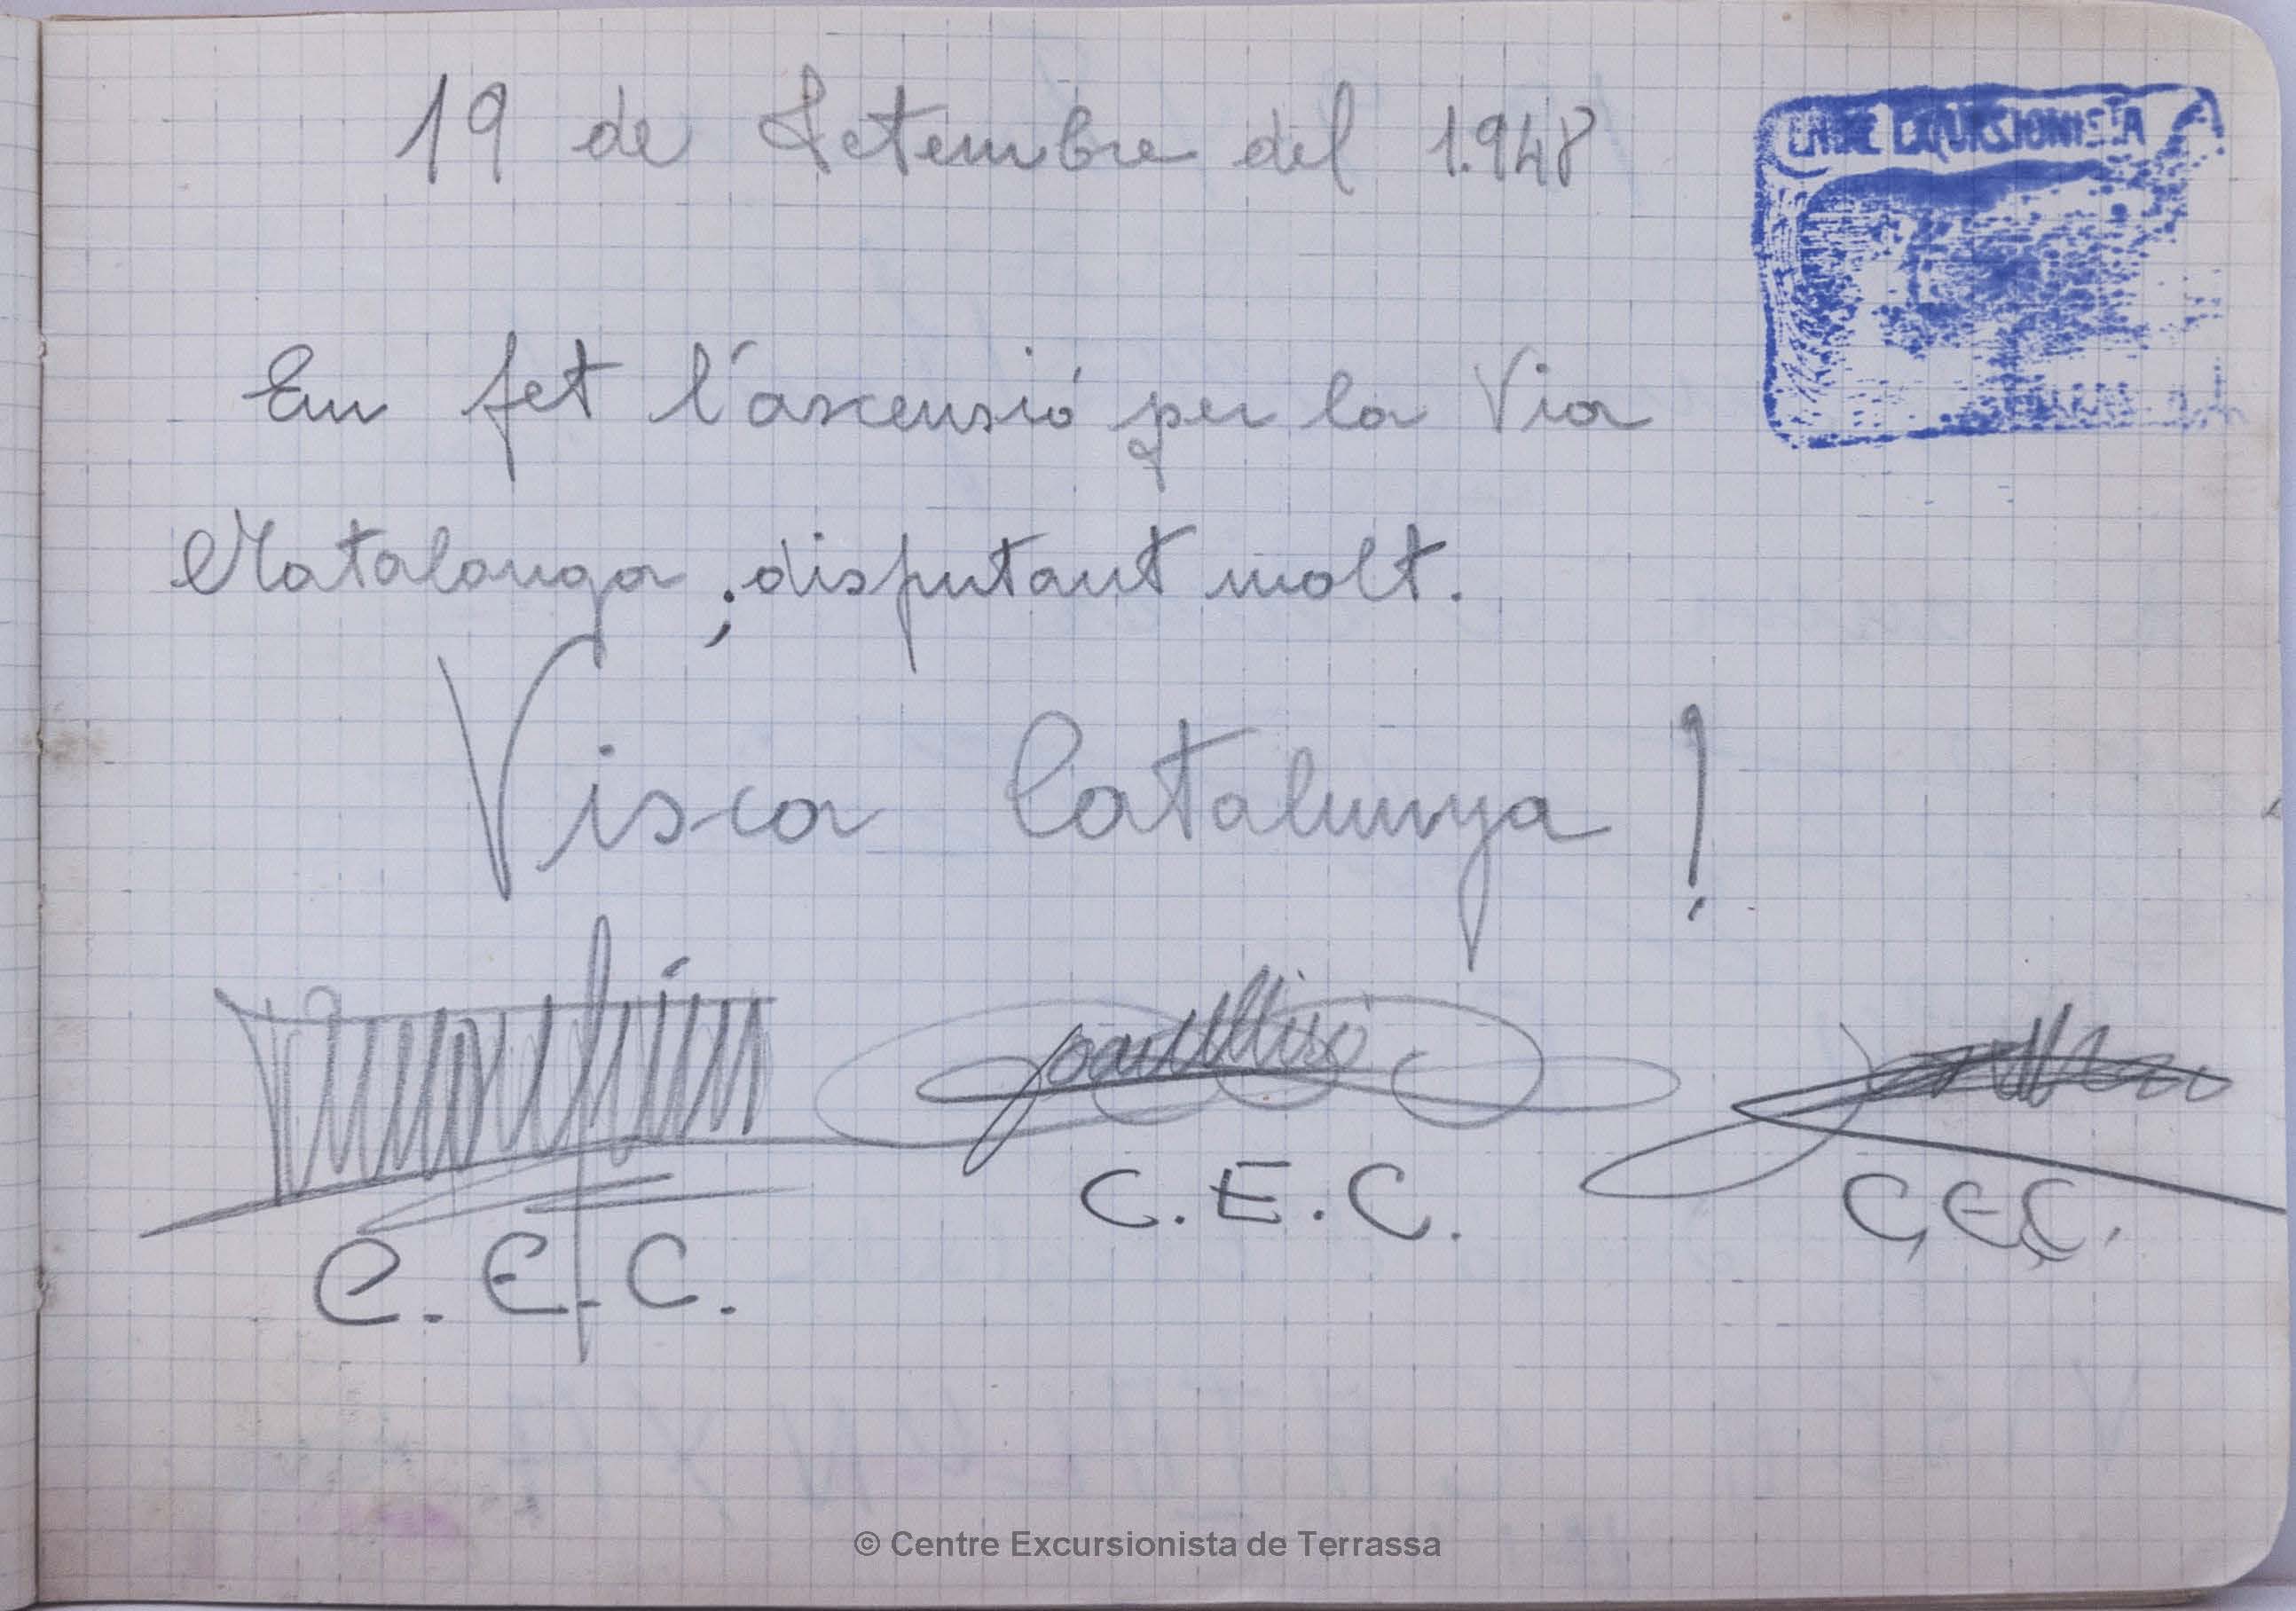 19 de Setembre del 1.948
CENTRE EXCURSIONISTA
Em fet l'ascensió per la Via
Matalonga ; disputant molt.
Visca Catalunya !
C.E.C.
C.E.C.
C.E.C.
© Centre Excursionista de Terrassa